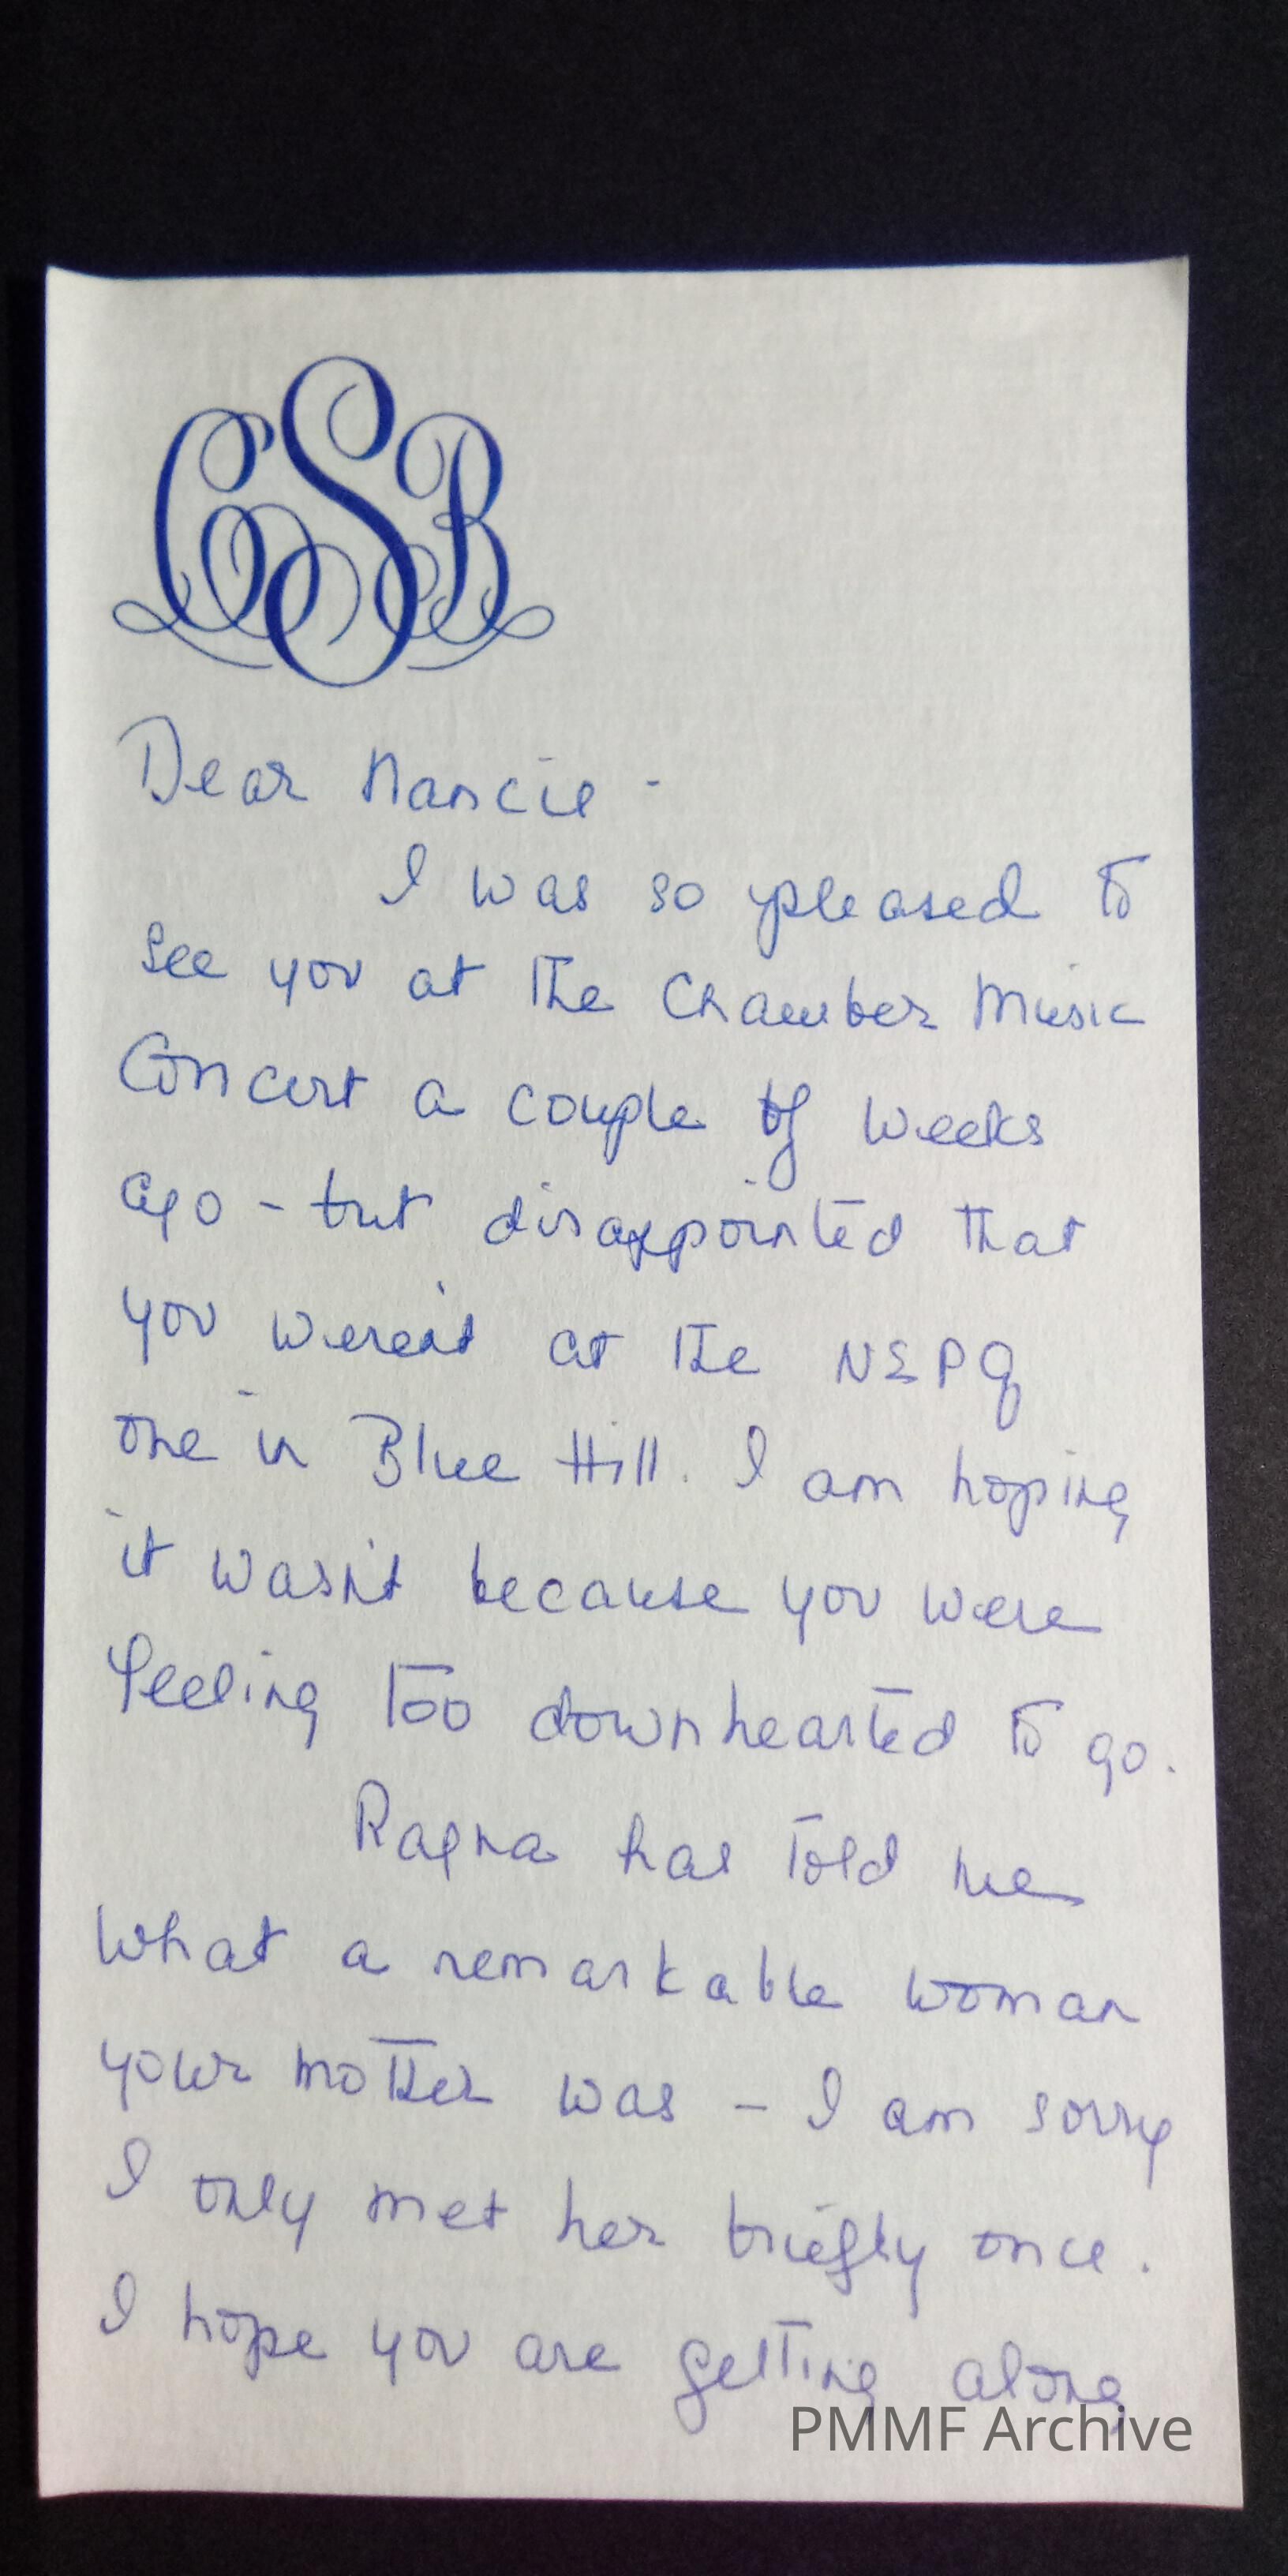 CSB
Dear Nancie -
I was so pleased to
see you at the Chamber Music
Concert a couple of weeks
ago - but disappointed that
you weren't at the NEPQ
one in Blue Hill. I am hoping
it wasn't because you were
feeling too downhearted to go.
Ragna has told me
what a remarkable woman
your mother was - I am sorry
I only met her briefly once.
I hope you are getting along
PMMF Archive